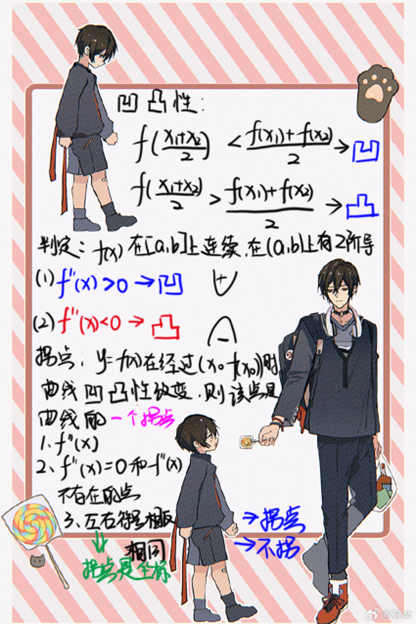 凹凸性:
f(x₁+x₂/2) < f(x₁)+f(x₂)/2 → 凹
f(x₁+x₂/2) > f(x₁)+f(x₂)/2 → 凸
判定: f(x)在[a,b]上连续,在(a,b)上有2阶导
(1) f''(x)>0 → 凹
(2) f''(x)<0 → 凸
拐点: y=f(x)在经过(x₀,f(x₀))时
曲线凹凸性改变,则该点是
曲线的一个拐点
1、f''(x)
2、f''(x)=0和f''(x)
不存在的点
3、左右符号相反 → 拐点
相同 → 不拐
拐点是坐标